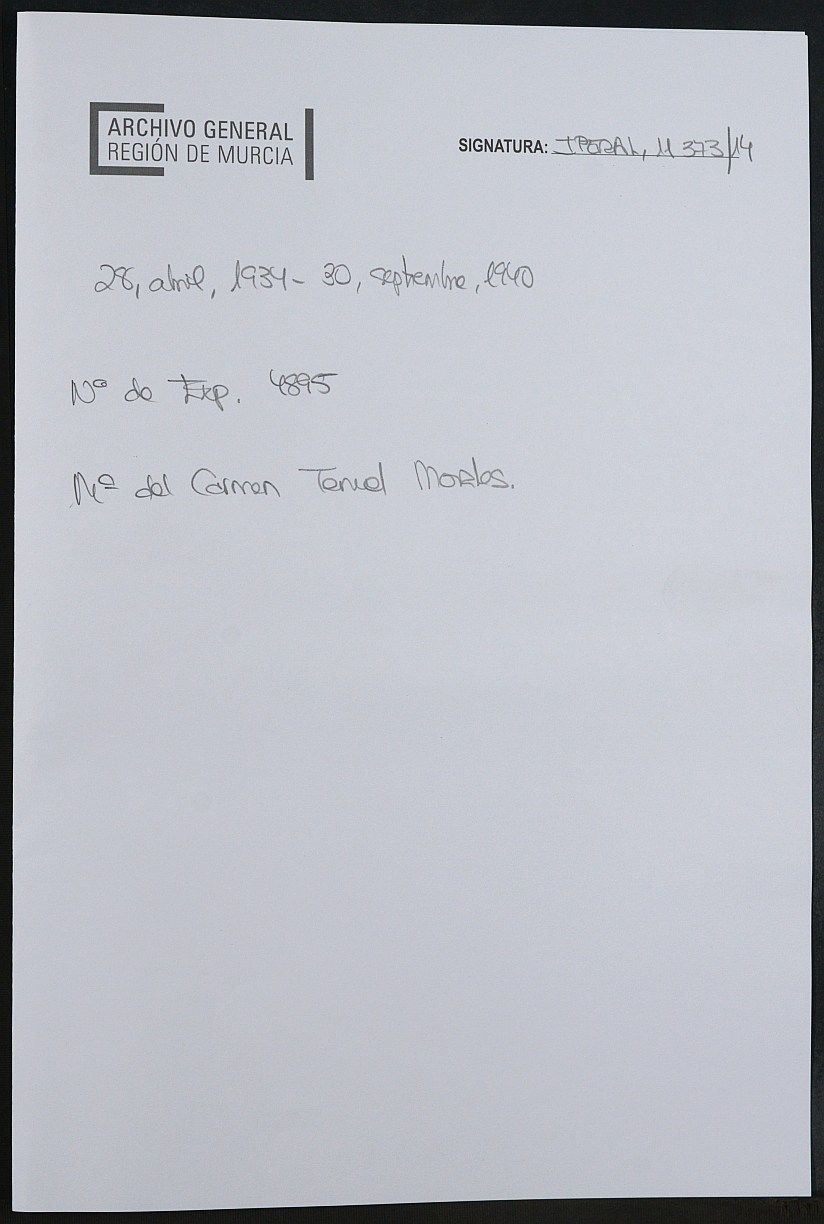 ARCHIVO GENERAL
REGIÓN DE MURCIA
SIGNATURA: IPERAL, 11373/14
28, abril, 1934 - 30, septiembre, 1940
Nº de Exp. 4895
Mª del Carmen Teruel Morales.